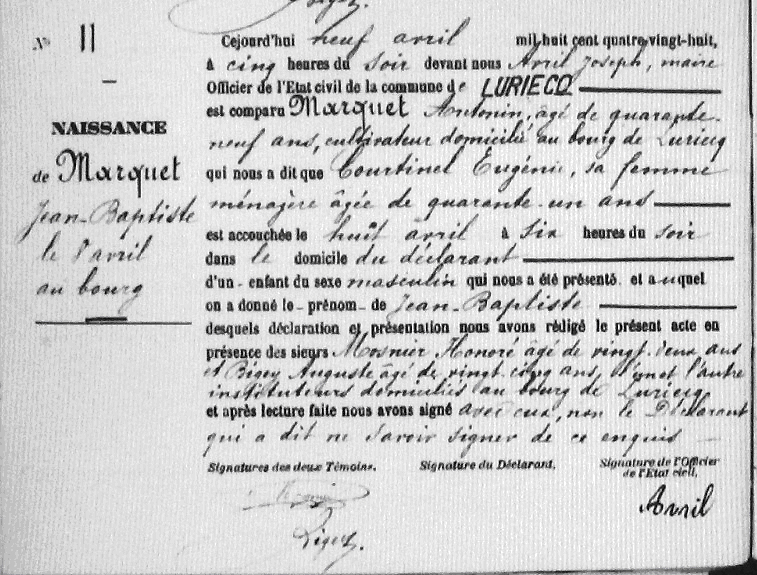 No 11
NAISSANCE
de Marquet
Jean-Baptiste
le 8 avril
au bourg
Cejourd'hui neuf avril mil huit cent quatre-vingt-huit,
à cinq heures du soir devant nous Avril Joseph, maire
Officier de l'Etat civil de la commune de LURIECQ
est comparu Marquet Antonin, âgé de quarante-
neuf ans, cultivateur domicilié au bourg de Luriecq
qui nous a dit que Courtinel Eugénie, sa femme
ménagère âgée de quarante-un ans
est accouchée le huit avril à six heures du soir
dans le domicile du déclarant
d'un - enfant du sexe masculin qui nous a été présenté et auquel
on a donné le - prénom - de Jean-Baptiste
desquels déclaration et présentation nous avons rédigé le présent acte en
présence des sieurs Mosnier Honoré âgé de vingt-deux ans
et Bigey Auguste âgé de vingt cinq ans, l'un et l'autre
instituteurs domiciliés au bourg de Luriecq
et après lecture faite nous avons signé avec eux, non le Déclarant
qui a dit ne savoir signer de ce enquis
Signatures des deux Témoins. Signature du Déclarant, Signature de l'Officier
de l'Etat civil,
Avril